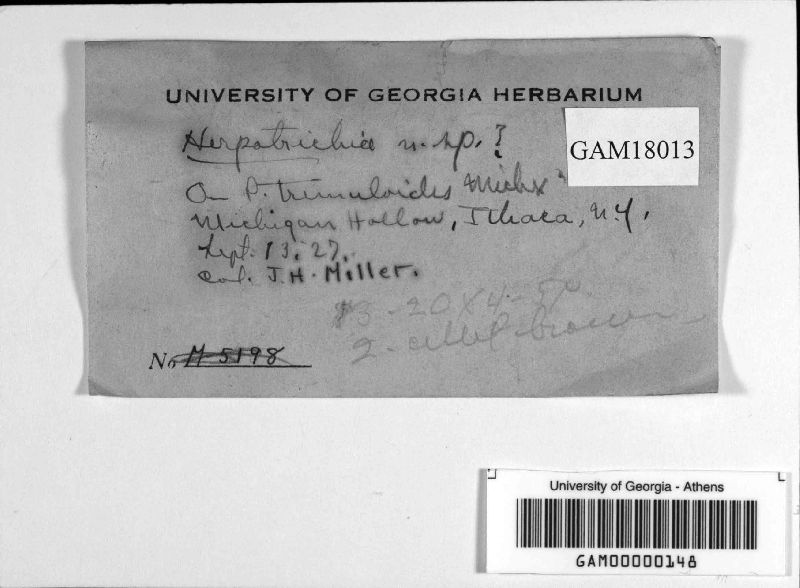 UNIVERSITY OF GEORGIA HERBARIUM
Herpotrichia n. sp. ?
GAM18013
On P. tremuloides Michx
Michigan Hollow, Ithaca, N.Y.
Sept. 13, 27.
Col. J.H. Miller.
13-20 X 4-5
2-celled brown
No M 5198
University of Georgia - Athens
GAM00000148